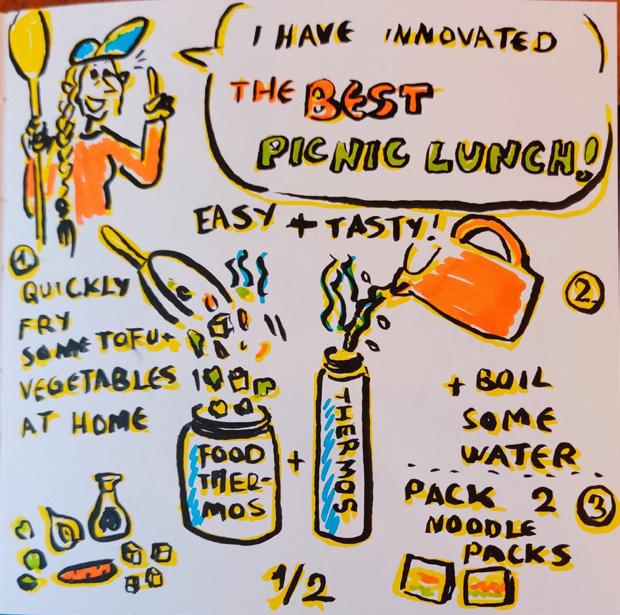 I HAVE INNOVATED
THE BEST
PICNIC LUNCH!
EASY + TASTY!
1
QUICKLY
FRY
SOME TOFU +
VEGETABLES
AT HOME
FOOD
THER-
MOS
+
THERMOS
2
+ BOIL
SOME
WATER
3
PACK 2
NOODLE
PACKS
1/2